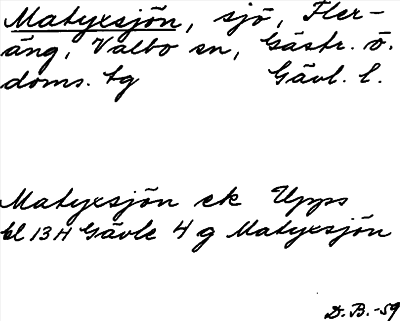 Matyxsjön, sjö, Fler-
äng, Valbo sn, Gästr. ö.
doms. tg Gävl. l.
Matyxsjön ek Upps
bl 13H Gävle 4 g Matyxsjön
D. B. -59